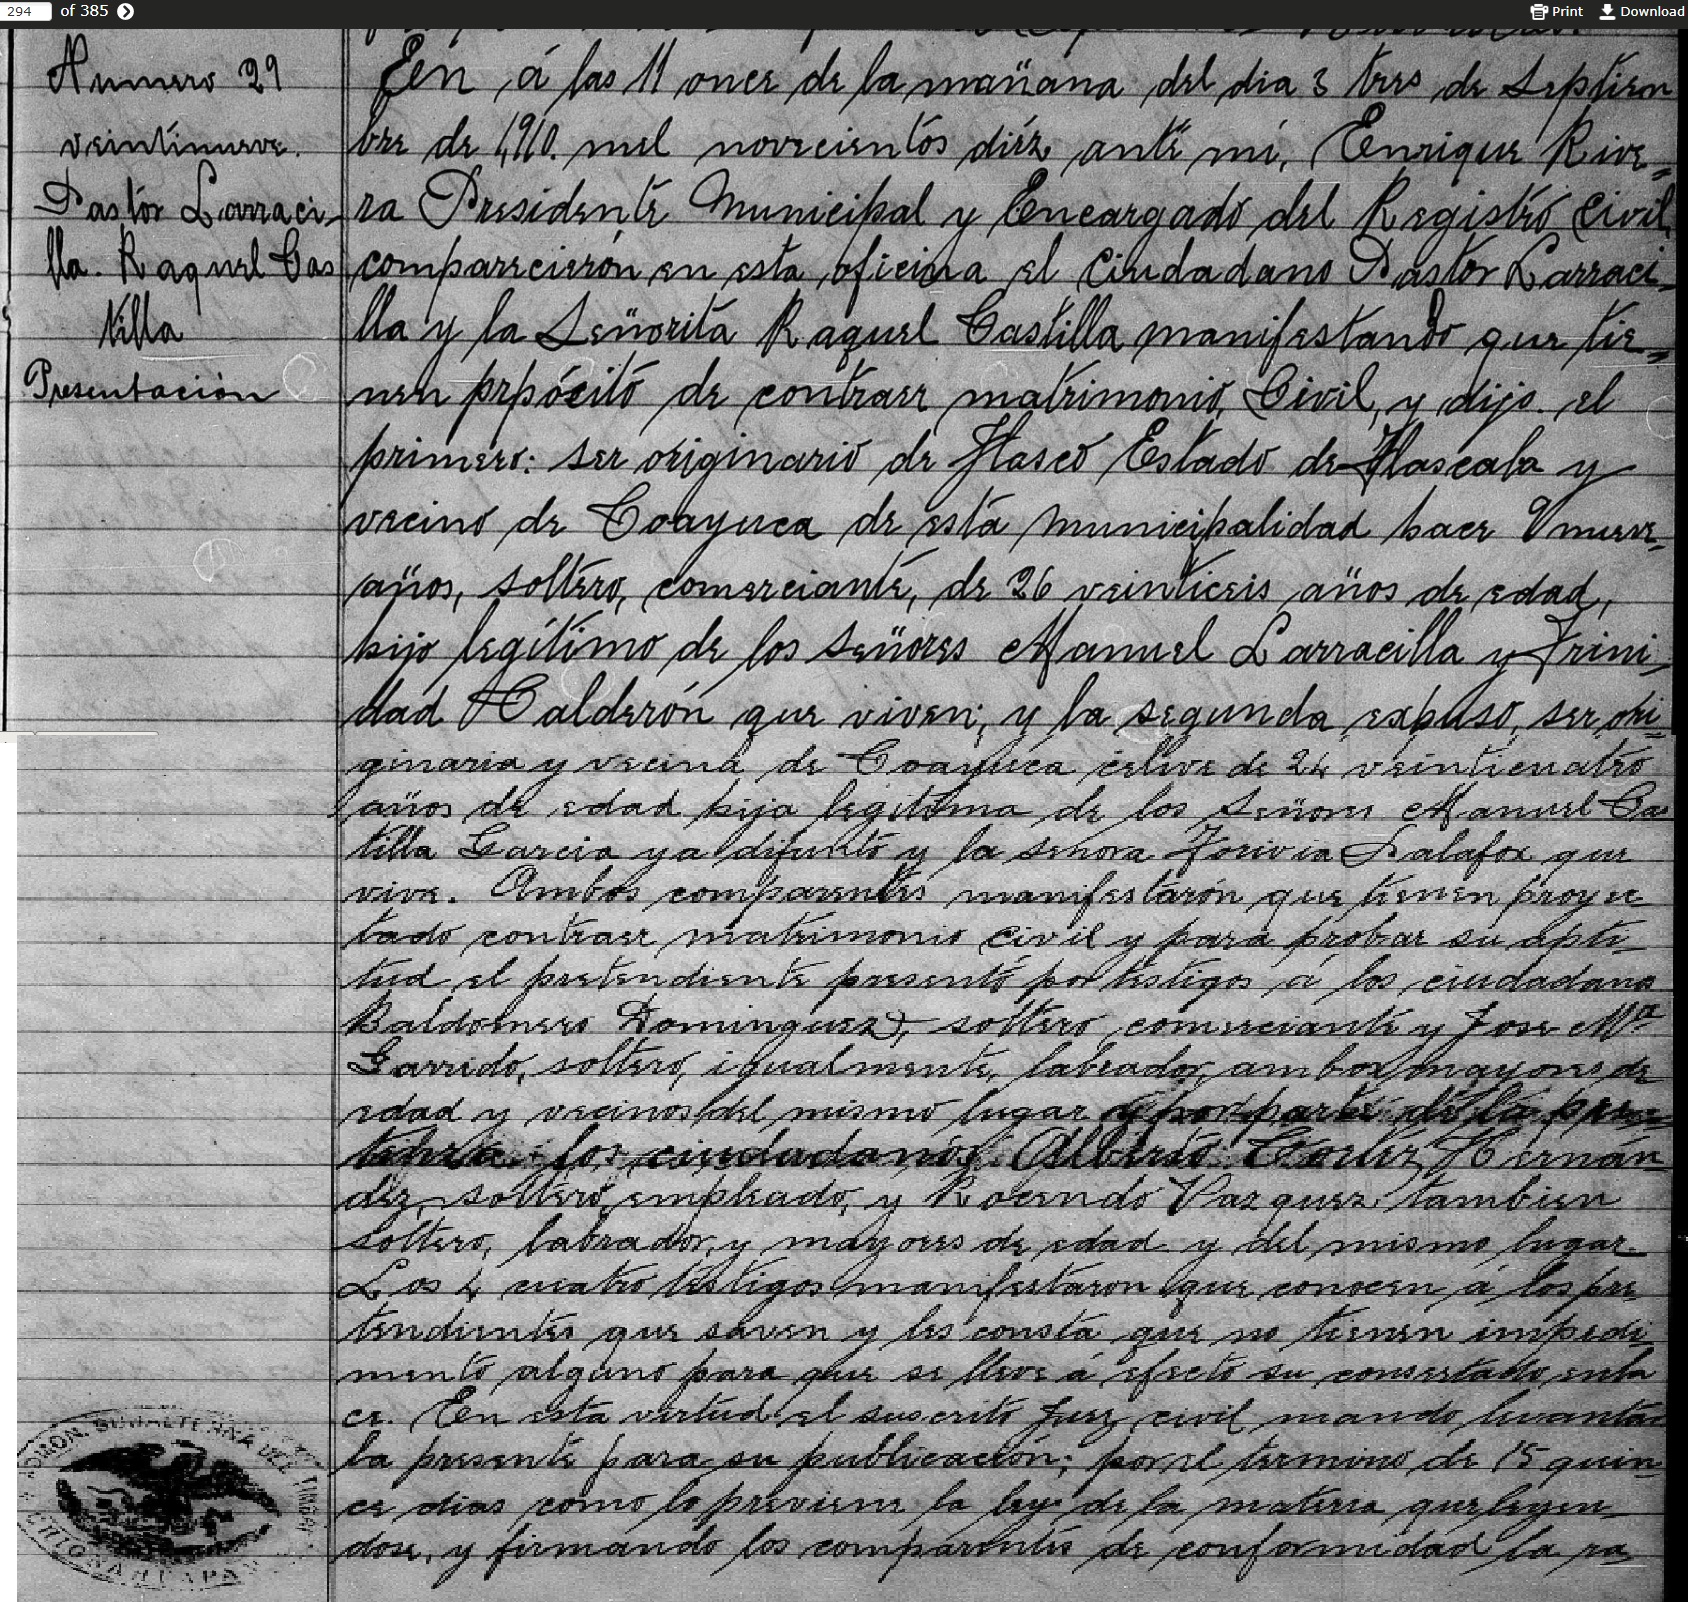 294 of 385 Print Download
Numero 29
veintinueve.
Pastor Larraci-
lla. Raquel Cas
tilla
Presentación
Een á las 11 once de la mañana del dia 3 tres de Septien
bre de 1910. mil novecientos diéz ante mi, Enrique Rive-
ra Presidente Municipal y Encargado del Registro Civil,
comparecierón en esta oficina el Ciudadano Pastor Larraci-
lla y la Señorita Raquel Castilla manifestando que tie-
nen prpócito de contraer matrimonio Civil, y dijo. el
primero: ser originario de Tlasco Estado de Tlascala y
vecino de Coayuca de esta municipalidad hace 9 nueve
años, soltero, comerciante, de 26 veinticeis años de edad,
hijo legitimo de los señores Manuel Larracilla y Trini-
dad Calderón que viven; y la segunda expuso, ser ori-
ginaria y vecina de Coayuca celive de 24 veinticuatro
años de edad hija legitima de los Señores Manuel Cas
tilla Garcia ya difunto y la señora Palafox que
vive. Ambos comparentes manifestarón que tienen proyec
tado contraer matrimonio civil y para probar su apti-
tud el pretendiente presentó por testigos á los ciudadanos
Baldomero Dominguez, soltero comerciante y Jose Ma
Garrido, soltero, igualmente, labrador, ambos mayores de
edad y vecinos del mismo lugar y por parte de la pre-
los ciudadanos Alberto Hernán
dez, soltero, empleado, y Rocendo Vazquez tambien
soltero, labrador, y mayores de edad y del mismo lugar.
Los 4 cuatro testigos manifestaron que conocen á los pre-
tendientes que saven y les consta que no tienen impedi-
mento alguno para que se lleve á efecto su consertado enla
ce. En esta virtud el suscrito Juez civil mando levantar
la presente para su publicación; por el termino de 15 quin-
ce dias como lo previene la ley de la materia que leyen-
dose, y firmando los comparentes de conformidad la ra